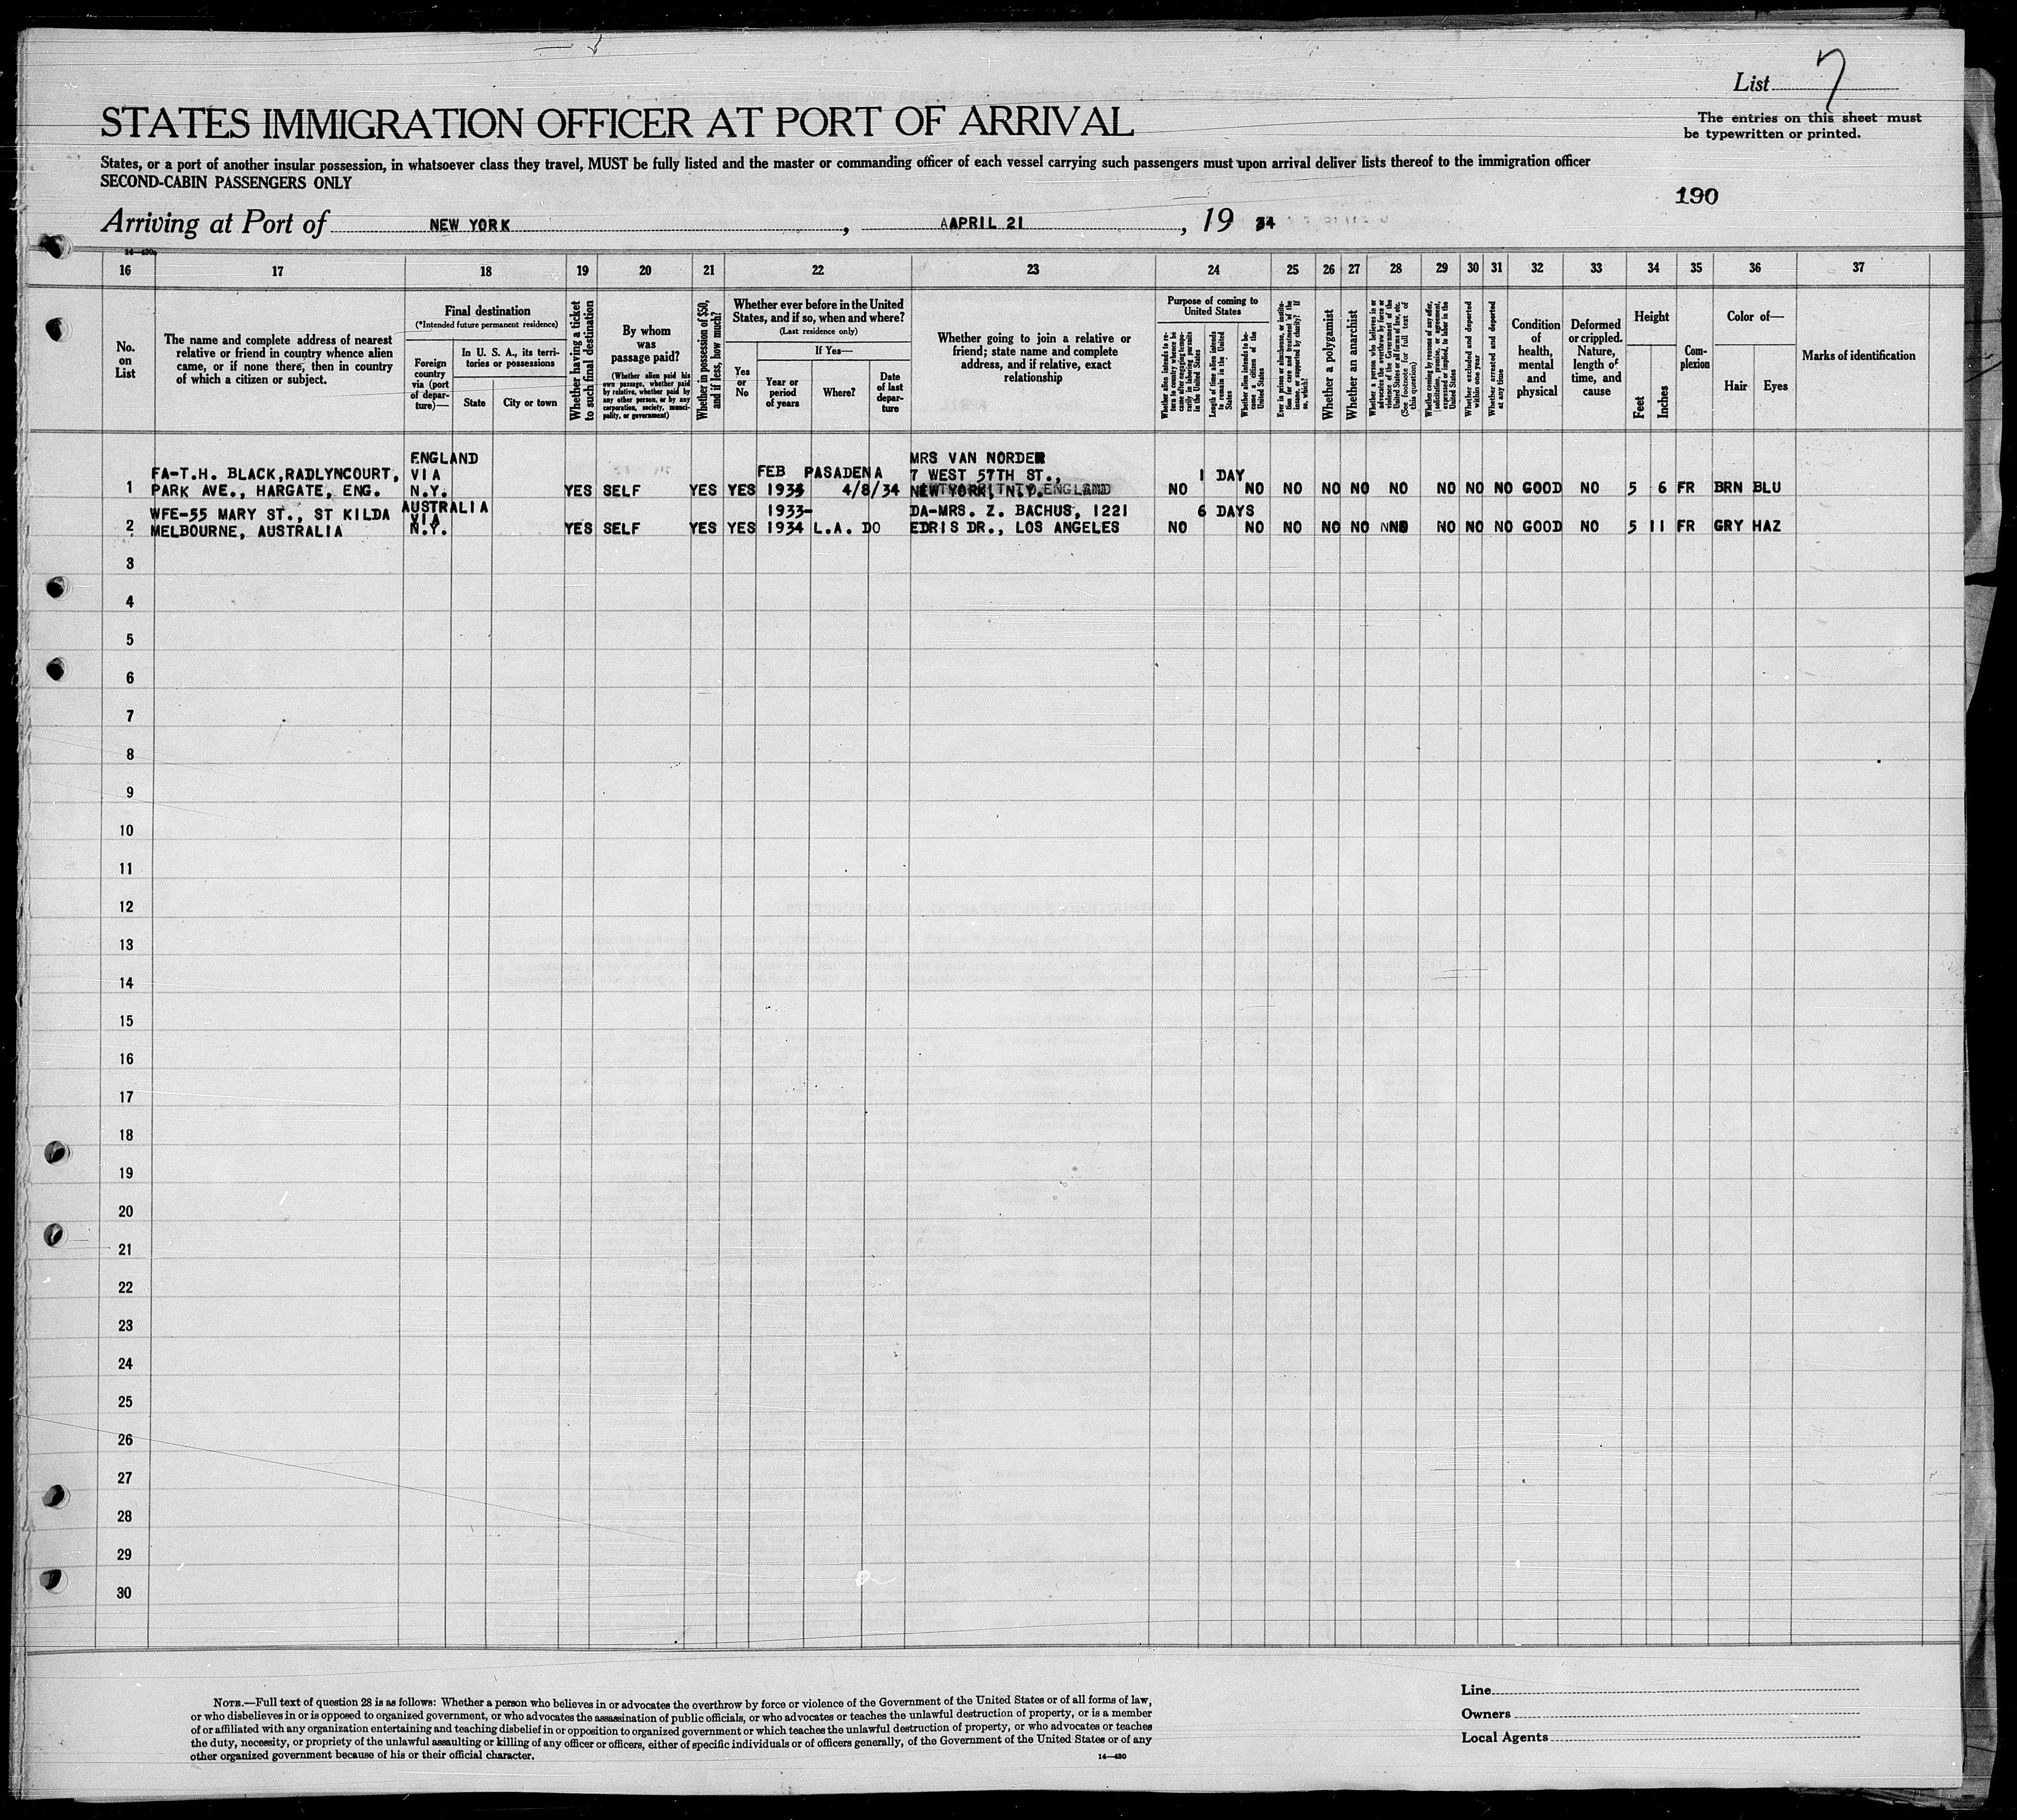 List 7
STATES IMMIGRATION OFFICER AT PORT OF ARRIVAL
The entries on this sheet must
be typewritten or printed.
States, or a port of another insular possession, in whatsoever class they travel, MUST be fully listed and the master or commanding officer of each vessel carrying such passengers must upon arrival deliver lists thereof to the immigration officer
SECOND-CABIN PASSENGERS ONLY
190
Arriving at Port of NEW YORK, AAPRIL 21, 19 34
14—430a
16 17 18 19 20 21 22 23 24 25 26 27 28 29 30 31 32 33 34 35 36 37
No.
on
List
The name and complete address of nearest
relative or friend in country whence alien
came, or if none there, then in country
of which a citizen or subject.
Final destination
(*Intended future permanent residence)
Foreign
country
via (port
of depar-
ture)—
In U. S. A., its terri-
tories or possessions
State
City or town
Whether having a ticket
to such final destination
By whom
was
passage paid?
(Whether alien paid his
own passage, whether paid
by relative, whether paid by
any other person, or by any
corporation, society, munici-
pality, or government)
Whether in possession of $50,
and if less, how much?
Whether ever before in the United
States, and if so, when and where?
(Last residence only)
Yes
or
No
If Yes—
Year or
period
of years
Where?
Date
of last
depar-
ture
Whether going to join a relative or
friend; state name and complete
address, and if relative, exact
relationship
Purpose of coming to
United States
Whether alien intends to re-
turn to country whence he
came after engaging tempo-
rarily in laboring pursuits
in the United States
Length of time alien intends
to remain in the United
States
Whether alien intends to be-
come a citizen of the
United States
Ever in prison or almshouse, or institu-
tion for care and treatment of the
insane, or supported by charity? If
so, which?
Whether a polygamist
Whether an anarchist
Whether a person who believes in or
advocates the overthrow by force or
violence of the Government of the
United States or all forms of law, etc.
(See footnote for full text of
this question)
Whether coming by reasons of any offer,
solicitation, promise, or agreement,
expressed or implied, to labor in the
United States
Whether excluded and deported
within one year
Whether arrested and deported
at any time
Condition
of
health,
mental
and
physical
Deformed
or crippled.
Nature,
length of
time, and
cause
Height
Feet
Inches
Com-
plexion
Color of—
Hair
Eyes
Marks of identification
ENGLAND MRS VAN NORDER
FA-T.H. BLACK,RADLYNCOURT, VIA FEB PASADENA 7 WEST 57TH ST., 1 DAY
1 PARK AVE., HARGATE, ENG. N.Y. YES SELF YES YES 1934 4/8/34 NEW YORK, N.Y. NO NO NO NO NO NO NO NO NO GOOD NO 5 6 FR BRN BLU
WFE-55 MARY ST., ST KILDA AUSTRALIA VIA 1933- DA-MRS. Z. BACHUS, 1221 6 DAYS
2 MELBOURNE, AUSTRALIA N.Y. YES SELF YES YES 1934 L.A. DO EDRIS DR., LOS ANGELES NO NO NO NO NO NNO NO NO NO GOOD NO 5 11 FR GRY HAZ
3
4
5
6
7
8
9
10
11
12
13
14
15
16
17
18
19
20
21
22
23
24
25
26
27
28
29
30
NOTE.—Full text of question 28 is as follows: Whether a person who believes in or advocates the overthrow by force or violence of the Government of the United States or of all forms of law,
or who disbelieves in or is opposed to organized government, or who advocates the assassination of public officials, or who advocates or teaches the unlawful destruction of property, or is a member
of or affiliated with any organization entertaining and teaching disbelief in or opposition to organized government or which teaches the unlawful destruction of property, or who advocates or teaches
the duty, necessity, or propriety of the unlawful assaulting or killing of any officer or officers, either of specific individuals or of officers generally, of the Government of the United States or of any
other organized government because of his or their official character.
14—430
Line
Owners
Local Agents